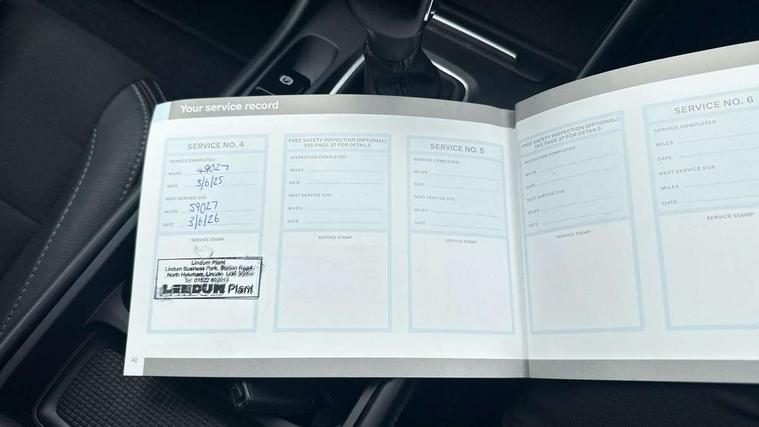 Your service record
SERVICE NO. 4
SERVICE COMPLETED
MILES 49027
DATE 3/6/25
NEXT SERVICE DUE
MILES 59027
DATE 3/6/26
SERVICE STAMP
Lindum Plant
Lindum Business Park, Station Road
North Hykeham, Lincoln
LINDUM Plant
FREE SAFETY INSPECTION (OPTIONAL)
SEE PAGE 37 FOR DETAILS
INSPECTION COMPLETED
MILES
DATE
NEXT SERVICE DUE
MILES
DATE
SERVICE STAMP
SERVICE NO. 5
SERVICE COMPLETED
MILES
DATE
NEXT SERVICE DUE
MILES
DATE
SERVICE STAMP
FREE SAFETY INSPECTION (OPTIONAL)
SEE PAGE 37 FOR DETAILS
INSPECTION COMPLETED
MILES
DATE
NEXT SERVICE DUE
MILES
DATE
SERVICE STAMP
SERVICE NO. 6
SERVICE COMPLETED
MILES
DATE
NEXT SERVICE DUE
MILES
DATE
SERVICE STAMP
42